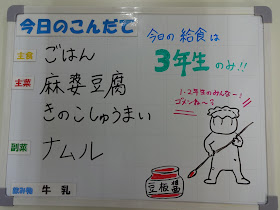 今日のこんだて
主食 ごはん
主菜 麻婆豆腐
きのこしゅうまい
副菜 ナムル
飲み物 牛乳
今日の給食は
3年生のみ!!
1・2年生のみんなー!
ゴメンね〜?
豆板醤